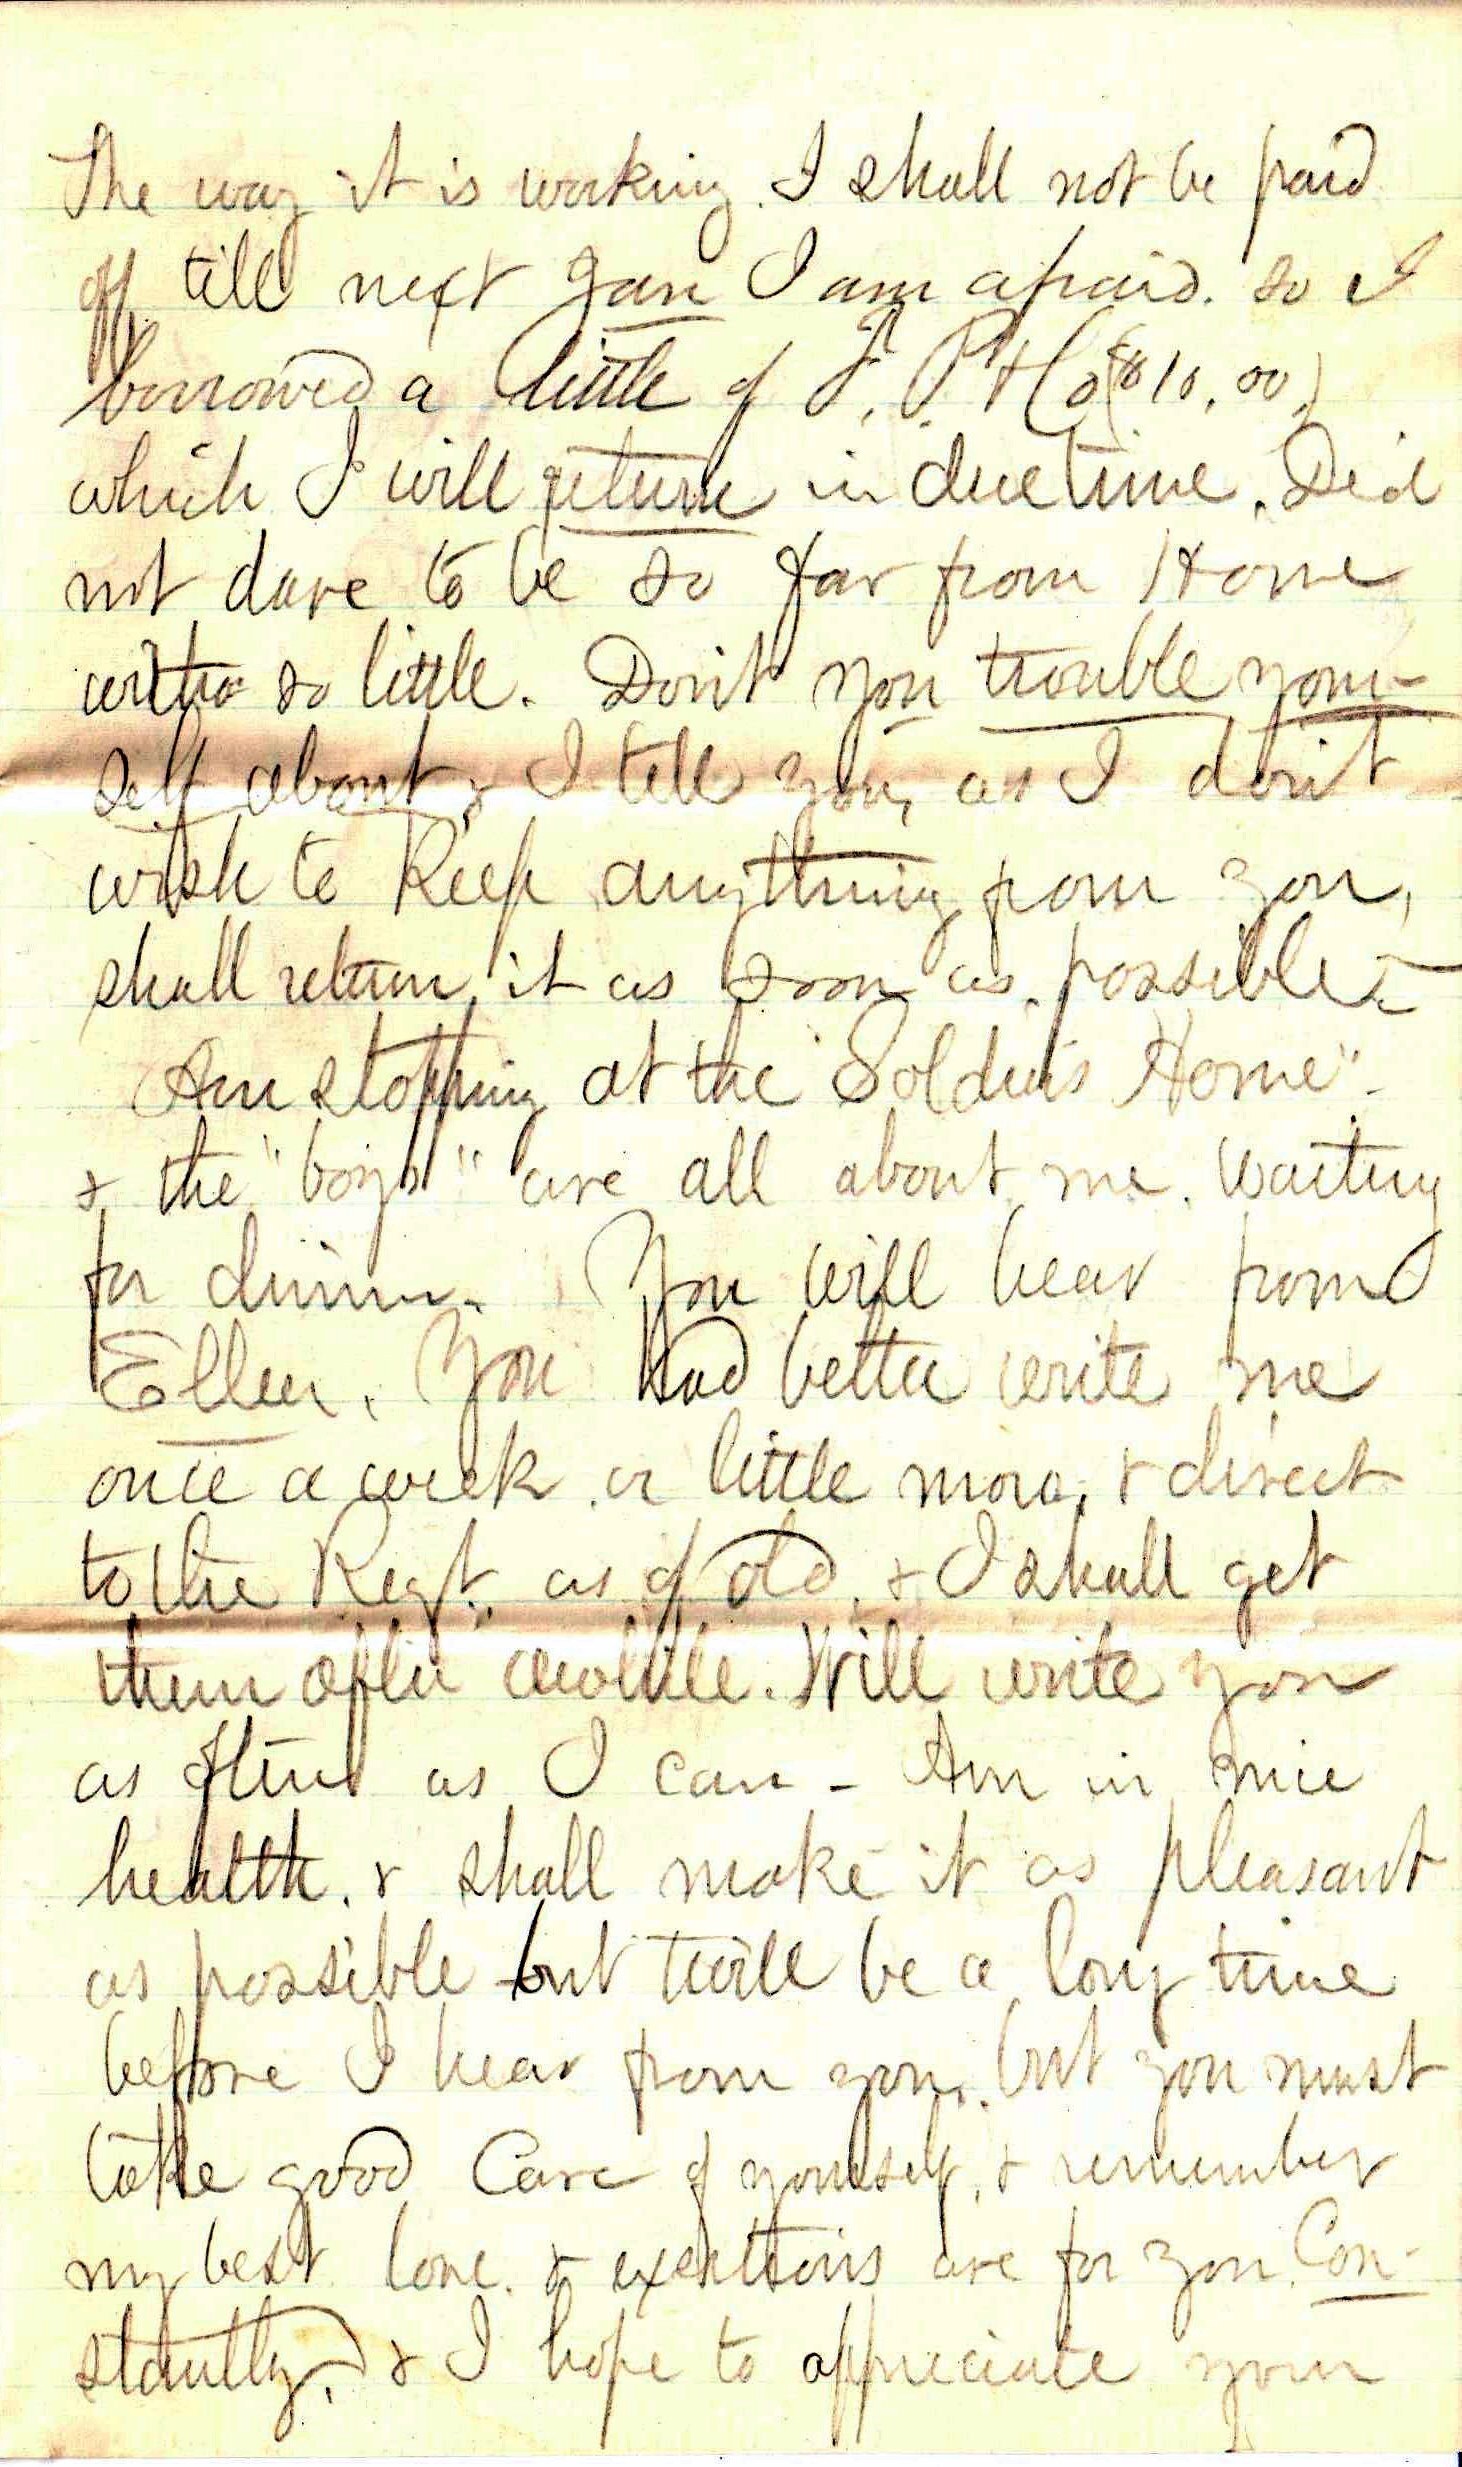 The way it is working. I shall not be paid
off till next Jan I am afraid. so I
borrowed a little of J. P. H ($10.00)
which I will return in due time. Did
not dare to be so far from Home
with so little. Don't you trouble your-
self about, I tell you, as I don't
wish to keep anything from you,
shall return it as soon as possible -
Am stopping at the Soldiers Home" -
& the "boys" are all about me. waiting
for dinner. You will hear from
Ellen. You had better write me
once a week or little more, & direct
to the Regt. as of old, & I shall get
them after awhile. Will write you
as often as I can - Am in nice
health. & shall make it as pleasant
as possible but twill be a long time
before I hear from you. but you must
take good Care of yourself, & remember
my best love. & exertions are for you Con-
stantly, & I hope to appreciate your